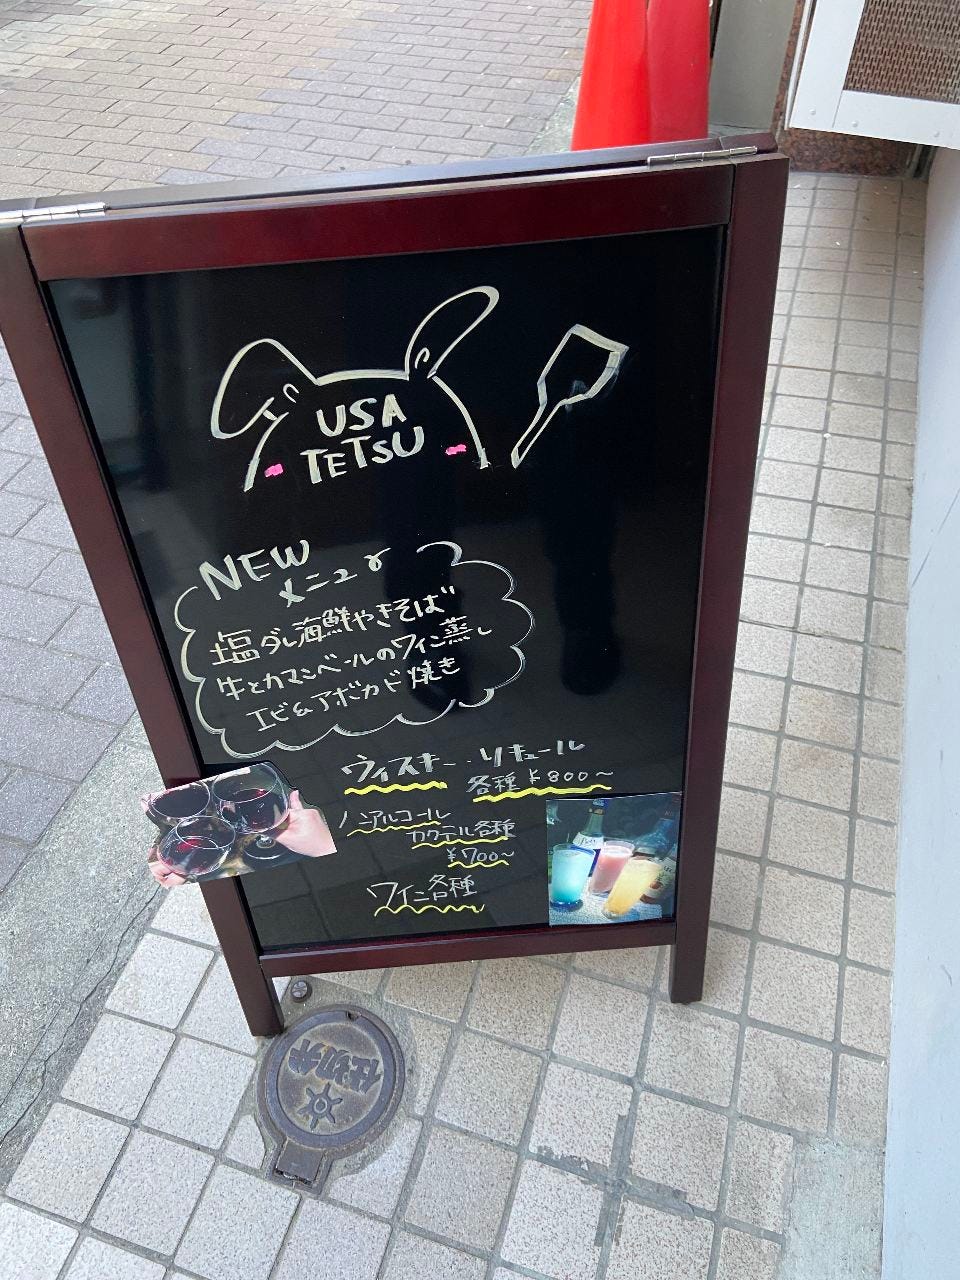 USA
TETSU
NEW
メニュー
塩ダレ海鮮やきそば
牛とカマンベールのワイン蒸し
エビ&アボカド焼き
ウィスキー・リキュール
各種 ¥800〜
ノンアルコール
カクテル各種
¥700〜
ワイン各種
仕切弁